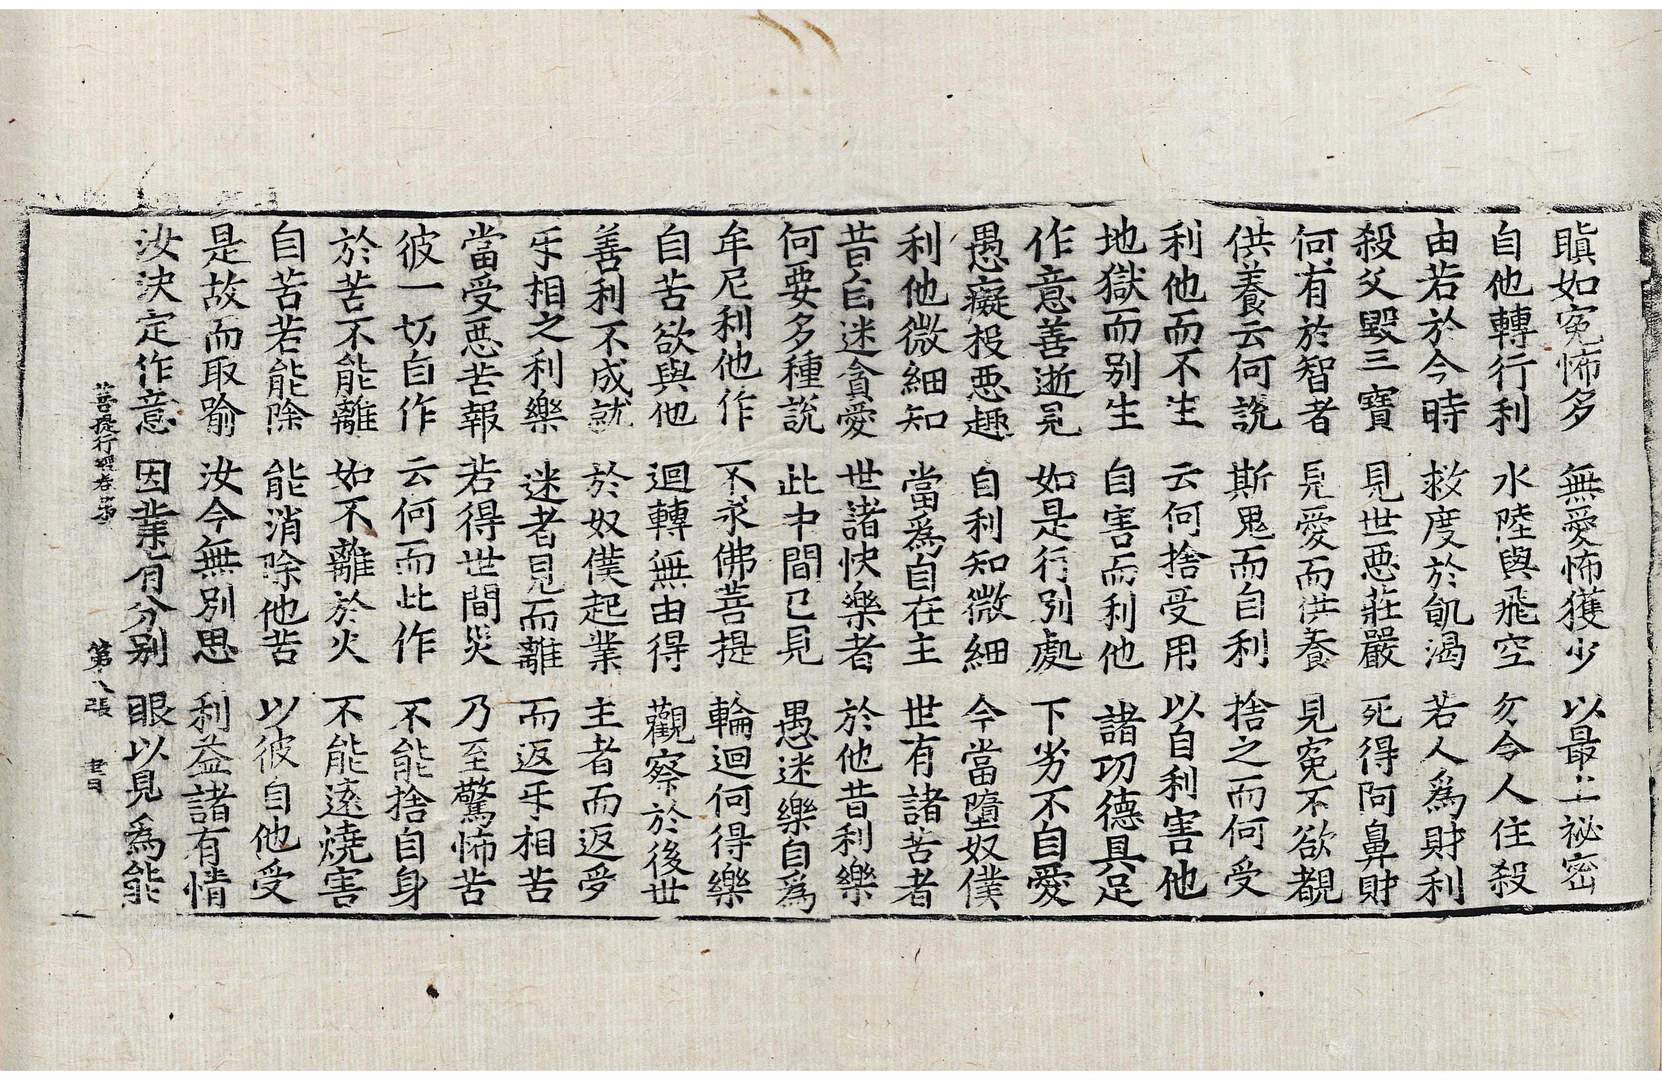 瞋如冤怖多　無愛怖獲少　以最上祕密
自他轉行利　水陸與飛空　勿令人住殺
由若於今時　救度於飢渴　若人為財利
殺父毀三寶　見世惡莊嚴　死得阿鼻財
何有於智者　見愛而供養　見冤不欲覩
供養云何說　斯鬼而自利　捨之而何受
利他而不生　云何捨受用　以自利害他
地獄而別生　自害而利他　諸功德具足
作意善逝見　如是行別處　下劣不自愛
愚癡投惡趣　自利知微細　今當墮奴僕
利他微細知　當為自在主　世有諸苦者
昔自迷貪愛　世諸快樂者　於他昔利樂
何要多種說　此中間已見　愚迷樂自為
牟尼利他作　不求佛菩提　輪迴何得樂
自苦欲與他　迴轉無由得　觀察於後世
善利不成就　於奴僕起業　主者而返受
乐相之利樂　迷者見而離　而返乐相苦
當受惡苦報　若得世間災　乃至驚怖苦
彼一切自作　云何而此作　不能捨自身
於苦不能離　如不離於火　不能遠燒害
自苦若能除　能消除他苦　以彼自他受
是故而取喻　汝今無別思　利益諸有情
汝決定作意　因業有分別　眼以見為能
菩提行經卷第　第八張　書日